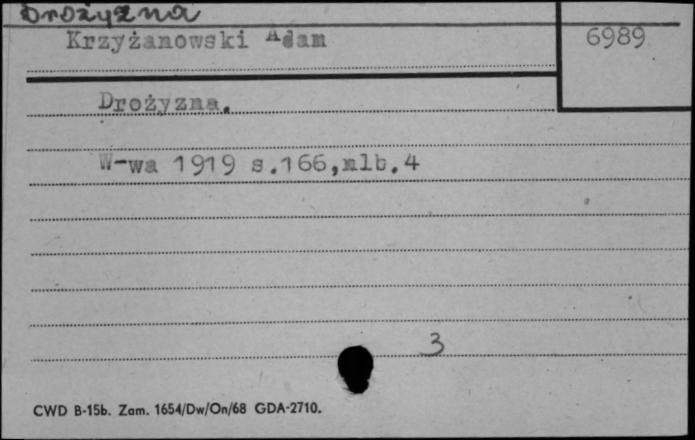 Drożyzna
Krzyżanowski Adam
6989
Drożyzna.
W-wa 1919 s.166,nlb.4
3
CWD B-15b. Zam. 1654/Dw/On/68 GDA-2710.